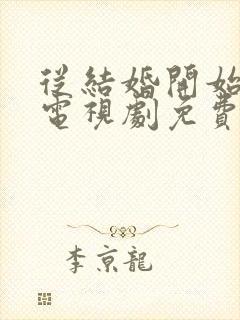 從結婚開始
電視劇免費
李京龍